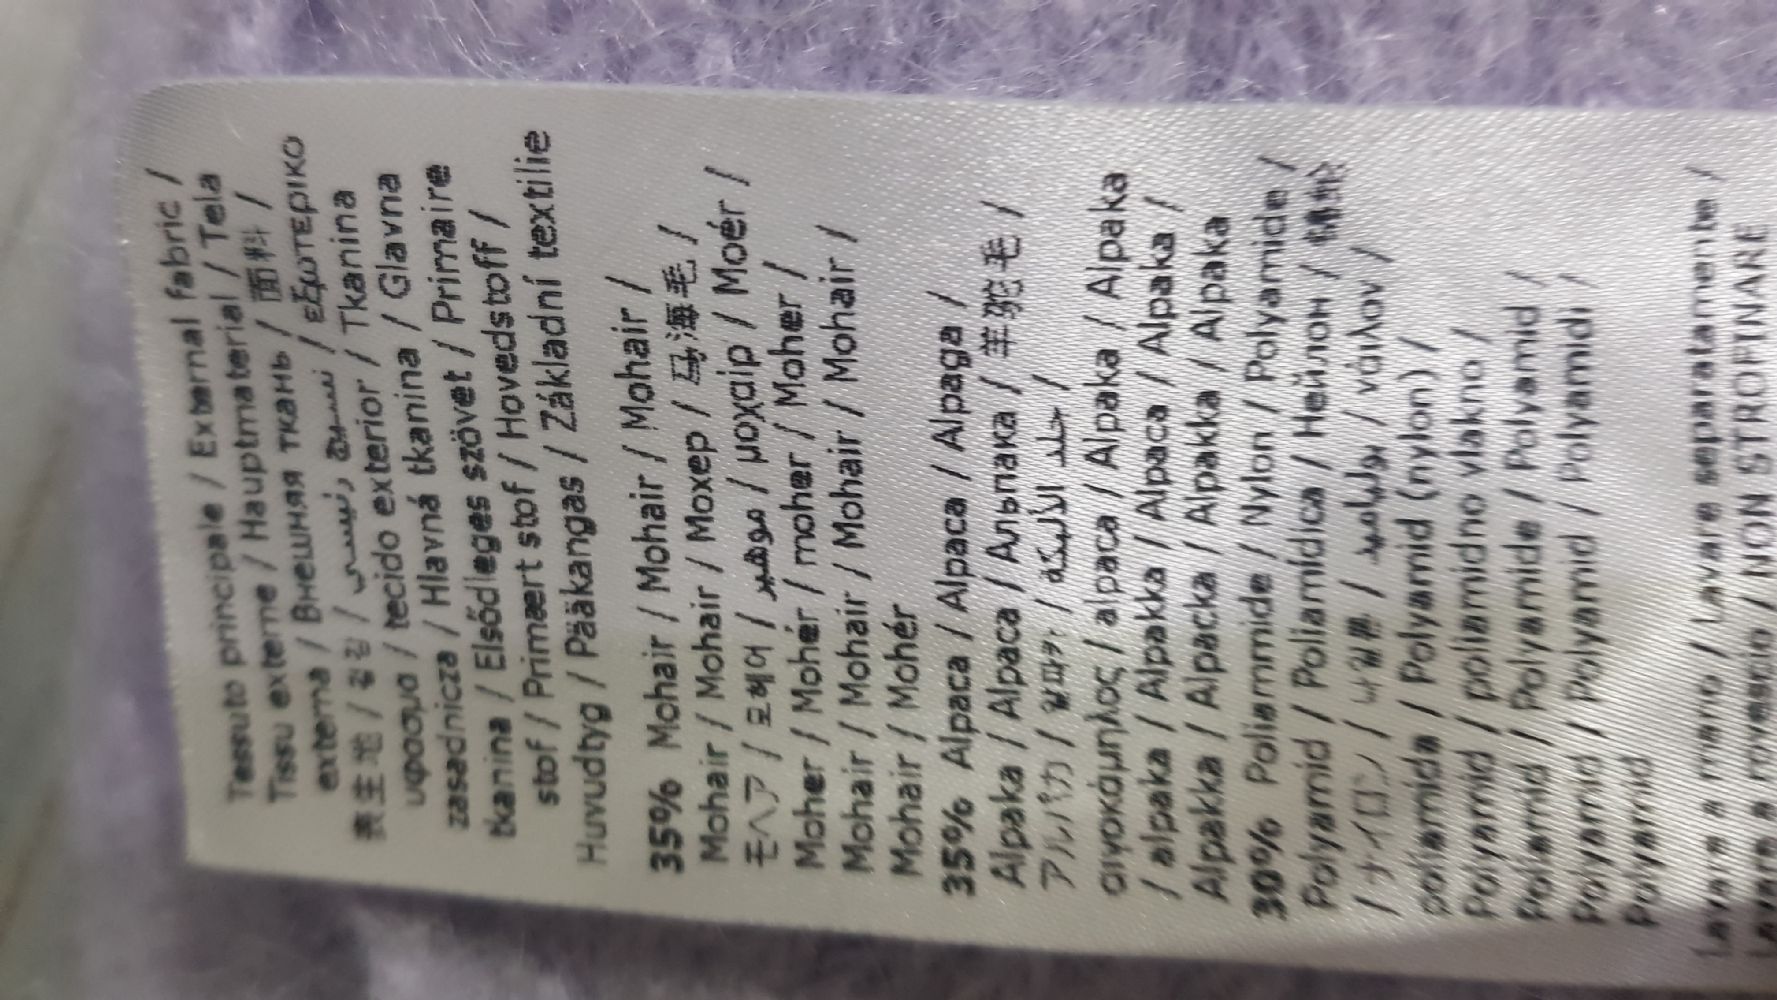 Tessuto principale / External fabric /
Tissu externe / Hauptmaterial / Tela
externa / Внешняя ткань / 面料 /
表生地 / 겉감 / نسيج رئيسي / εξωτερικο
υφασμα / tecido exterior / Tkanina
zasadnicza / Hlavná tkanina / Glavna
tkanina / Elsődleges szövet / Primaire
stof / Primært stof / Hovedstoff /
Huvudtyg / Pääkangas / Základní textilie
35% Mohair / Mohair / Mohair /
Mohair / Mohair / Мохер / 马海毛 /
モヘア / 모헤어 / موهير / μοχαιρ / Moér /
Moher / Mohér / moher / Moher /
Mohair / Mohair / Mohair / Mohair /
Mohair / Mohér
35% Alpaca / Alpaca / Alpaga /
Alpaka / Alpaca / Альпака / 羊驼毛 /
アルパカ / 알파카 / جلد الألبكه /
αιγοκάμηλος / alpaca / Alpaka / Alpaka
/ alpaka / Alpakka / Alpaca / Alpaka /
Alpakka / Alpacka / Alpakka / Alpaka
30% Poliammide / Nylon / Polyamide /
Polyamid / Poliamidica / Нейлон / 锦纶
/ ナイロン / 나일론 / بولياميد / νάιλον /
poliamida / Polyamid (nylon) /
Polyamid / poliamidno vlakno /
Poliamid / Polyamide / Polyamid
Polyamid / Polyamid / Polyamidi /
Polyamid
Lavare a mano / Lavare separatamente /
Lavare a rovescio / NON STROFINARE